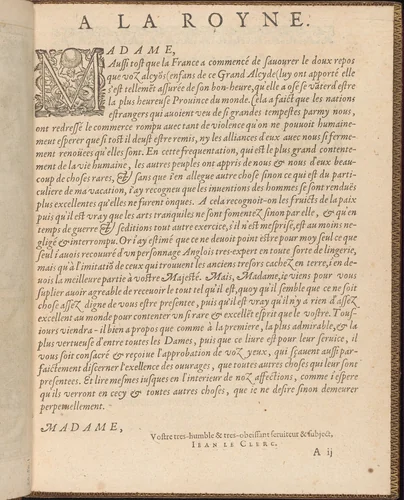 A LA ROYNE.
MADAME,
Aussi tost que la France a commencé de sauourer le doux repos
que voz alcyõs (enfans de ce Grand Alcyde) luy ont apporté elle
s'est tellemẽt assurée de son bon-heure, qu'elle a osé se vãter d'estre
la plus heureuse Prouince du monde. Cela a faict que les nations
estrangers qui auoient veu de si grandes tempestes parmy nous,
ont redressé le commerce rompu auec tant de violence qu'on ne pouuoit humaine-
ment esperer que si tost il deust estre remis, ny les alliances d'eux auec nous si ferme-
ment renoüées qu'elles sont. En cette frequentation, qui est le plus grand contente-
ment de la vie humaine, les autres peuples ont appris de nous & nous d'eux beau-
coup de choses rares, & sans que i'en allegue autre chose sinon ce qui est du parti-
culiere de ma vacation, i'ay recogneu que les inuentions des hommes se sont renduës
plus excellentes qu'elles ne furent onques. A cela recognoit-on les fruicts de la paix
puis qu'il est vray que les arts tranquiles ne sont fomentez sinon par elle, & qu'en
temps de guerre & seditions tout autre exercice, s'il n'est mesprisé, est au moins ne-
gligé & interrompu. Or i'ay estimé que ce ne deuoit point estre pour moy seul ce que
seul i'auois recouuré d'vn personnage Anglois tres-expert en toute sorte de lingerie,
mais qu'à l'imitatiõ de ceux qui trouuent les anciens tresors cachez en terre, i'en de-
uois la meilleure partie à vostre Majesté. Mais, Madame, ie viens pour vous
suplier auoir agreable de receuoir le tout tel qu'il est, quoy qu'il semble que ce ne soit
chose assez digne de vous estre presentee, puis qu'il est vray qu'il n'y a rien d'assez
excellent au monde pour contenter vn si rare & excellẽt esprit que le vostre. Tous-
iours viendra-il bien a propos que comme à la premiere, la plus admirable, & la
plus vertueuse d'entre toutes les Dames, puis que ce liure est pour leur seruice, il
vous soit consacré & reçoiue l'approbation de voz yeux, qui sçauent aussi par-
faictement discerner l'exellence des ouurages, que toutes autres choses qui leur sont
presentees. Et lire mesmes iusques en l'interieur de noz affections, comme i'espere
qu'ils verront en cecy & toutes autres choses, que ie ne desire sinon demeurer
perpetuellement.
MADAME,
Vostre tres-humble & tres-obeissant seruiteur & subject,
IEAN LE CLERC.
A ij